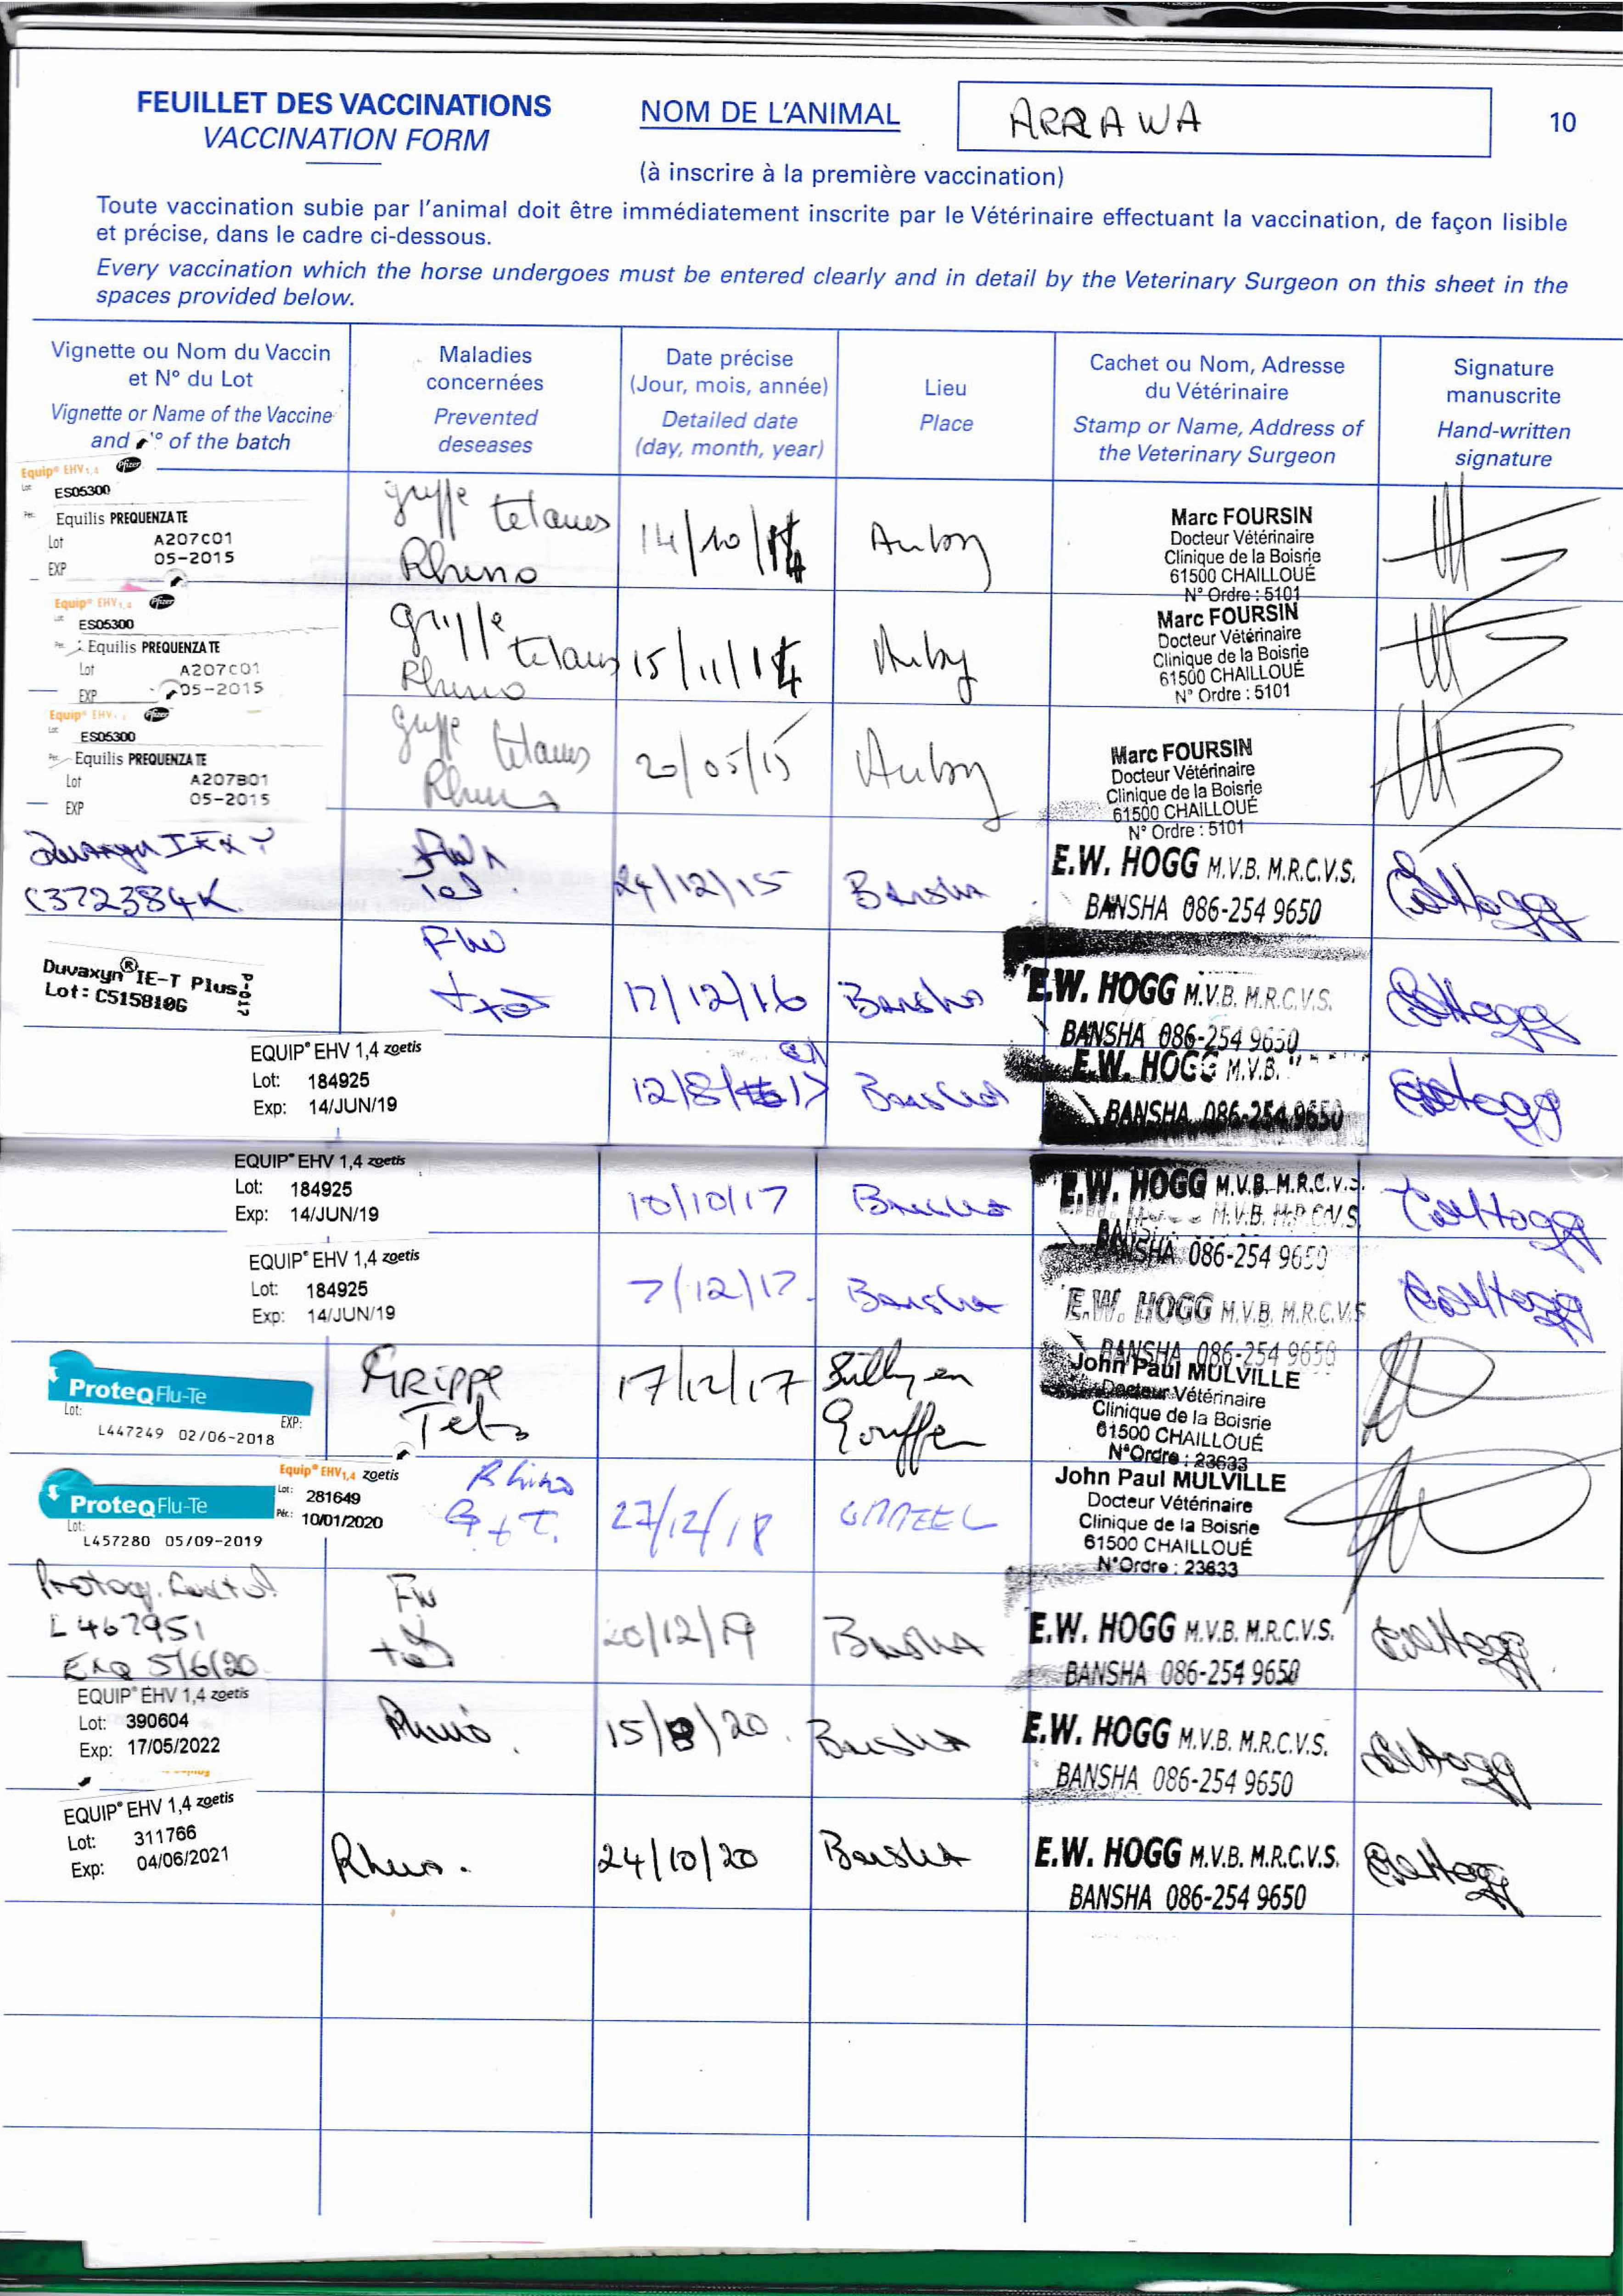 FEUILLET DES VACCINATIONS
VACCINATION FORM
NOM DE L'ANIMAL
ARRAWA
10
(à inscrire à la première vaccination)
Toute vaccination subie par l'animal doit être immédiatement inscrite par le Vétérinaire effectuant la vaccination, de façon lisible
et précise, dans le cadre ci-dessous.
Every vaccination which the horse undergoes must be entered clearly and in detail by the Veterinary Surgeon on this sheet in the
spaces provided below.
Vignette ou Nom du Vaccin
et N° du Lot
Vignette or Name of the Vaccine
and N° of the batch
Maladies
concernées
Prevented
deseases
Date précise
(Jour, mois, année)
Detailed date
(day, month, year)
Lieu
Place
Cachet ou Nom, Adresse
du Vétérinaire
Stamp or Name, Address of
the Veterinary Surgeon
Signature
manuscrite
Hand-written
signature
Equip® EHV1,4 Pfizer
Lot: ES05300
Per.
Equilis PREQUENZA TE
Lot A207C01
EXP 05-2015
grippe tetanos
Rhino
14/10/14
Marc FOURSIN
Docteur Vétérinaire
Clinique de la Boisrie
61500 CHAILLOUÉ
N° Ordre : 5101
Equip® EHV1,4 Pfizer
Lot: ES05300
Per. Equilis PREQUENZA TE
Lot A207C01
EXP 05-2015
grippe tetanos
Rhino
15/11/14
Marc FOURSIN
Docteur Vétérinaire
Clinique de la Boisrie
61500 CHAILLOUÉ
N° Ordre : 5101
Equip® EHV Pfizer
Lot: ES05300
Per. Equilis PREQUENZA TE
Lot A207B01
EXP 05-2015
grippe tetanos
Rhino
20/05/15
Marc FOURSIN
Docteur Vétérinaire
Clinique de la Boisrie
61500 CHAILLOUÉ
N° Ordre : 5101
Duvaxyn
C372384K
Flu
Tet.
24/12/15
Bansha
E.W. HOGG M.V.B. M.R.C.V.S.
BANSHA 086-254 9650
Duvaxyn® IE-T Plus
Lot: C515810G
Flu
tet
17/12/16
Bansha
E.W. HOGG M.V.B. M.R.C.V.S.
BANSHA 086-254 9650
EQUIP® EHV 1,4 zoetis
Lot: 184925
Exp: 14/JUN/19
12/8/17
Bansha
E.W. HOGG M.V.B.
BANSHA 086-254 9650
EQUIP® EHV 1,4 zoetis
Lot: 184925
Exp: 14/JUN/19
10/10/17
Bansha
E.W. HOGG M.V.B. M.R.C.V.S.
M.V.B. M.R.C.V.S.
BANSHA 086-254 9650
EQUIP® EHV 1,4 zoetis
Lot: 184925
Exp: 14/JUN/19
7/12/17
Bansha
E.W. HOGG M.V.B. M.R.C.V.S
BANSHA 086-254 9650
ProteqFlu-Te
Lot: EXP:
L447249 02/06-2018
GRIPPE
Tet
17/12/17
Silly en
Gouffern
John Paul MULVILLE
Docteur Vétérinaire
Clinique de la Boisrie
61500 CHAILLOUÉ
N°Ordre : 23633
ProteqFlu-Te
Lot:
L457280 05/09-2019
Equip® EHV1,4 zoetis
Lot: 281649
Pér.: 10/01/2020
Rhino
G + T.
27/12/18
John Paul MULVILLE
Docteur Vétérinaire
Clinique de la Boisrie
61500 CHAILLOUÉ
N°Ordre : 23633
L467951
Exp 5/6/20
Flu
tet
20/12/19
Bansha
E.W. HOGG M.V.B. M.R.C.V.S.
BANSHA 086-254 9650
EQUIP® EHV 1,4 zoetis
Lot: 390604
Exp: 17/05/2022
Rhino.
15/8/20.
Bansha
E.W. HOGG M.V.B. M.R.C.V.S.
BANSHA 086-254 9650
EQUIP® EHV 1,4 zoetis
Lot: 311766
Exp: 04/06/2021
Rhino.
24/10/20
Bansha
E.W. HOGG M.V.B. M.R.C.V.S.
BANSHA 086-254 9650